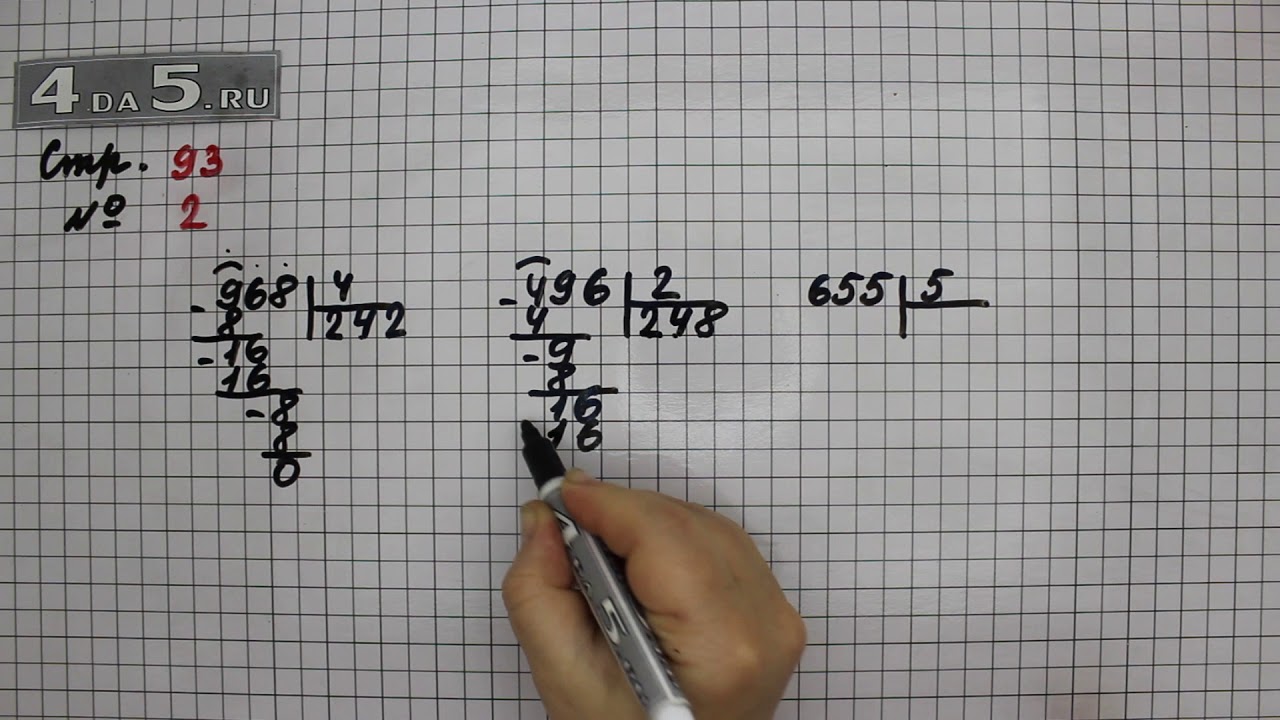 4 DA 5.RU
Стр. 93
№ 2
968 | 4
- 8 | 242
- 16
16
- 8
8
0
496 | 2
- 4 | 248
- 9
8
16
16
655 | 5